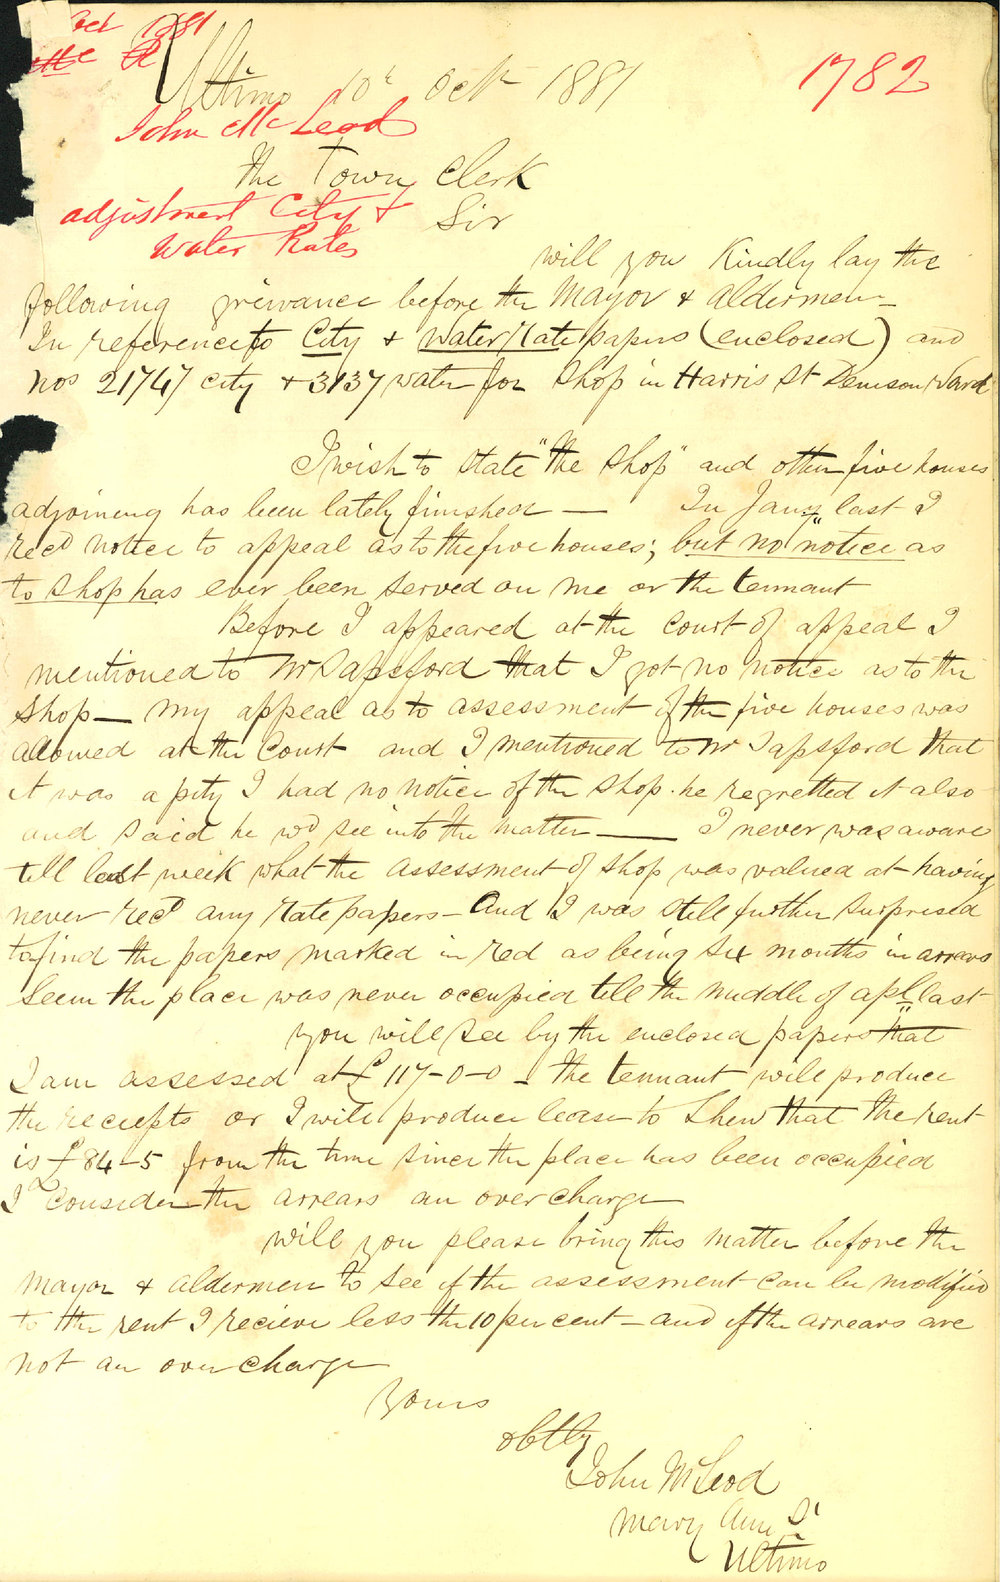 Oct 1881
Ultimo 10t Octr 1881
1782
John McLeod
The Town Clerk
adjustment City &
Water Rates
Sir
will you Kindly lay the
following grievance before the Mayor & Aldermen_
In reference to City & Water Rate papers (enclosed) and
Nos 21747 City & 3137 Water for Shop in Harris St Denison Ward
I wish to state "the Shop" and other five houses
adjoining has been lately finished — In Jany last I
recd notice to appeal as to the five houses; but no "notice" as
to Shop has ever been served on me or the tennant
Before I appeared at the Court of appeal I
mentioned to Mr Sapsford that I got no notice as to the
Shop — My appeal as to assessment of the five houses was
allowed at the Court and I mentioned to Mr Sapsford that
it was a pity I had no notice of the Shop. he regretted it also
and said he wd see into the matter — I never was aware
till last week what the assessment of Shop was valued at having
never recd any rate papers — And I was still further surprised
to find the papers marked in red as being six months in arrears
Seein the place was never occupied till the middle of apl last
you will see by the enclosed papers that
I am assessed at £117-0-0 — the tennant will produce
the receipts or I will produce lease to Shew that the rent
is £84-5 from the time since the place has been occupied
I Consider the arrears an over charge
Will you please bring this matter before the
Mayor & Aldermen to see if the assessment can be modified
to the rent I recieve less the 10 per cent — and if the arrears are
not an over charge
Yours
obtly
John McLeod
Mary Ann St
Ultimo